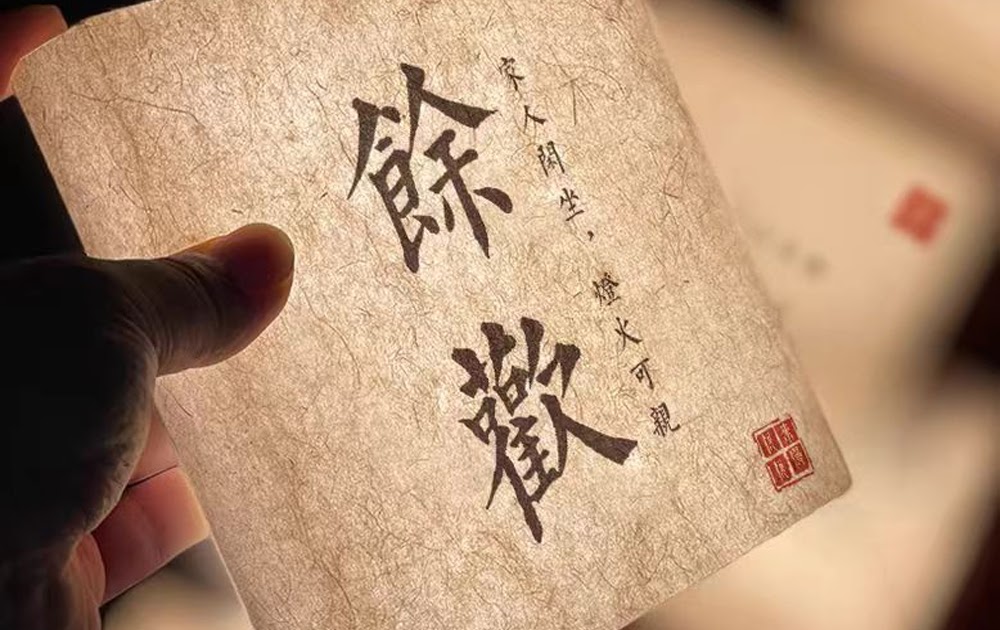 家人閑坐，燈火可親
餘歡